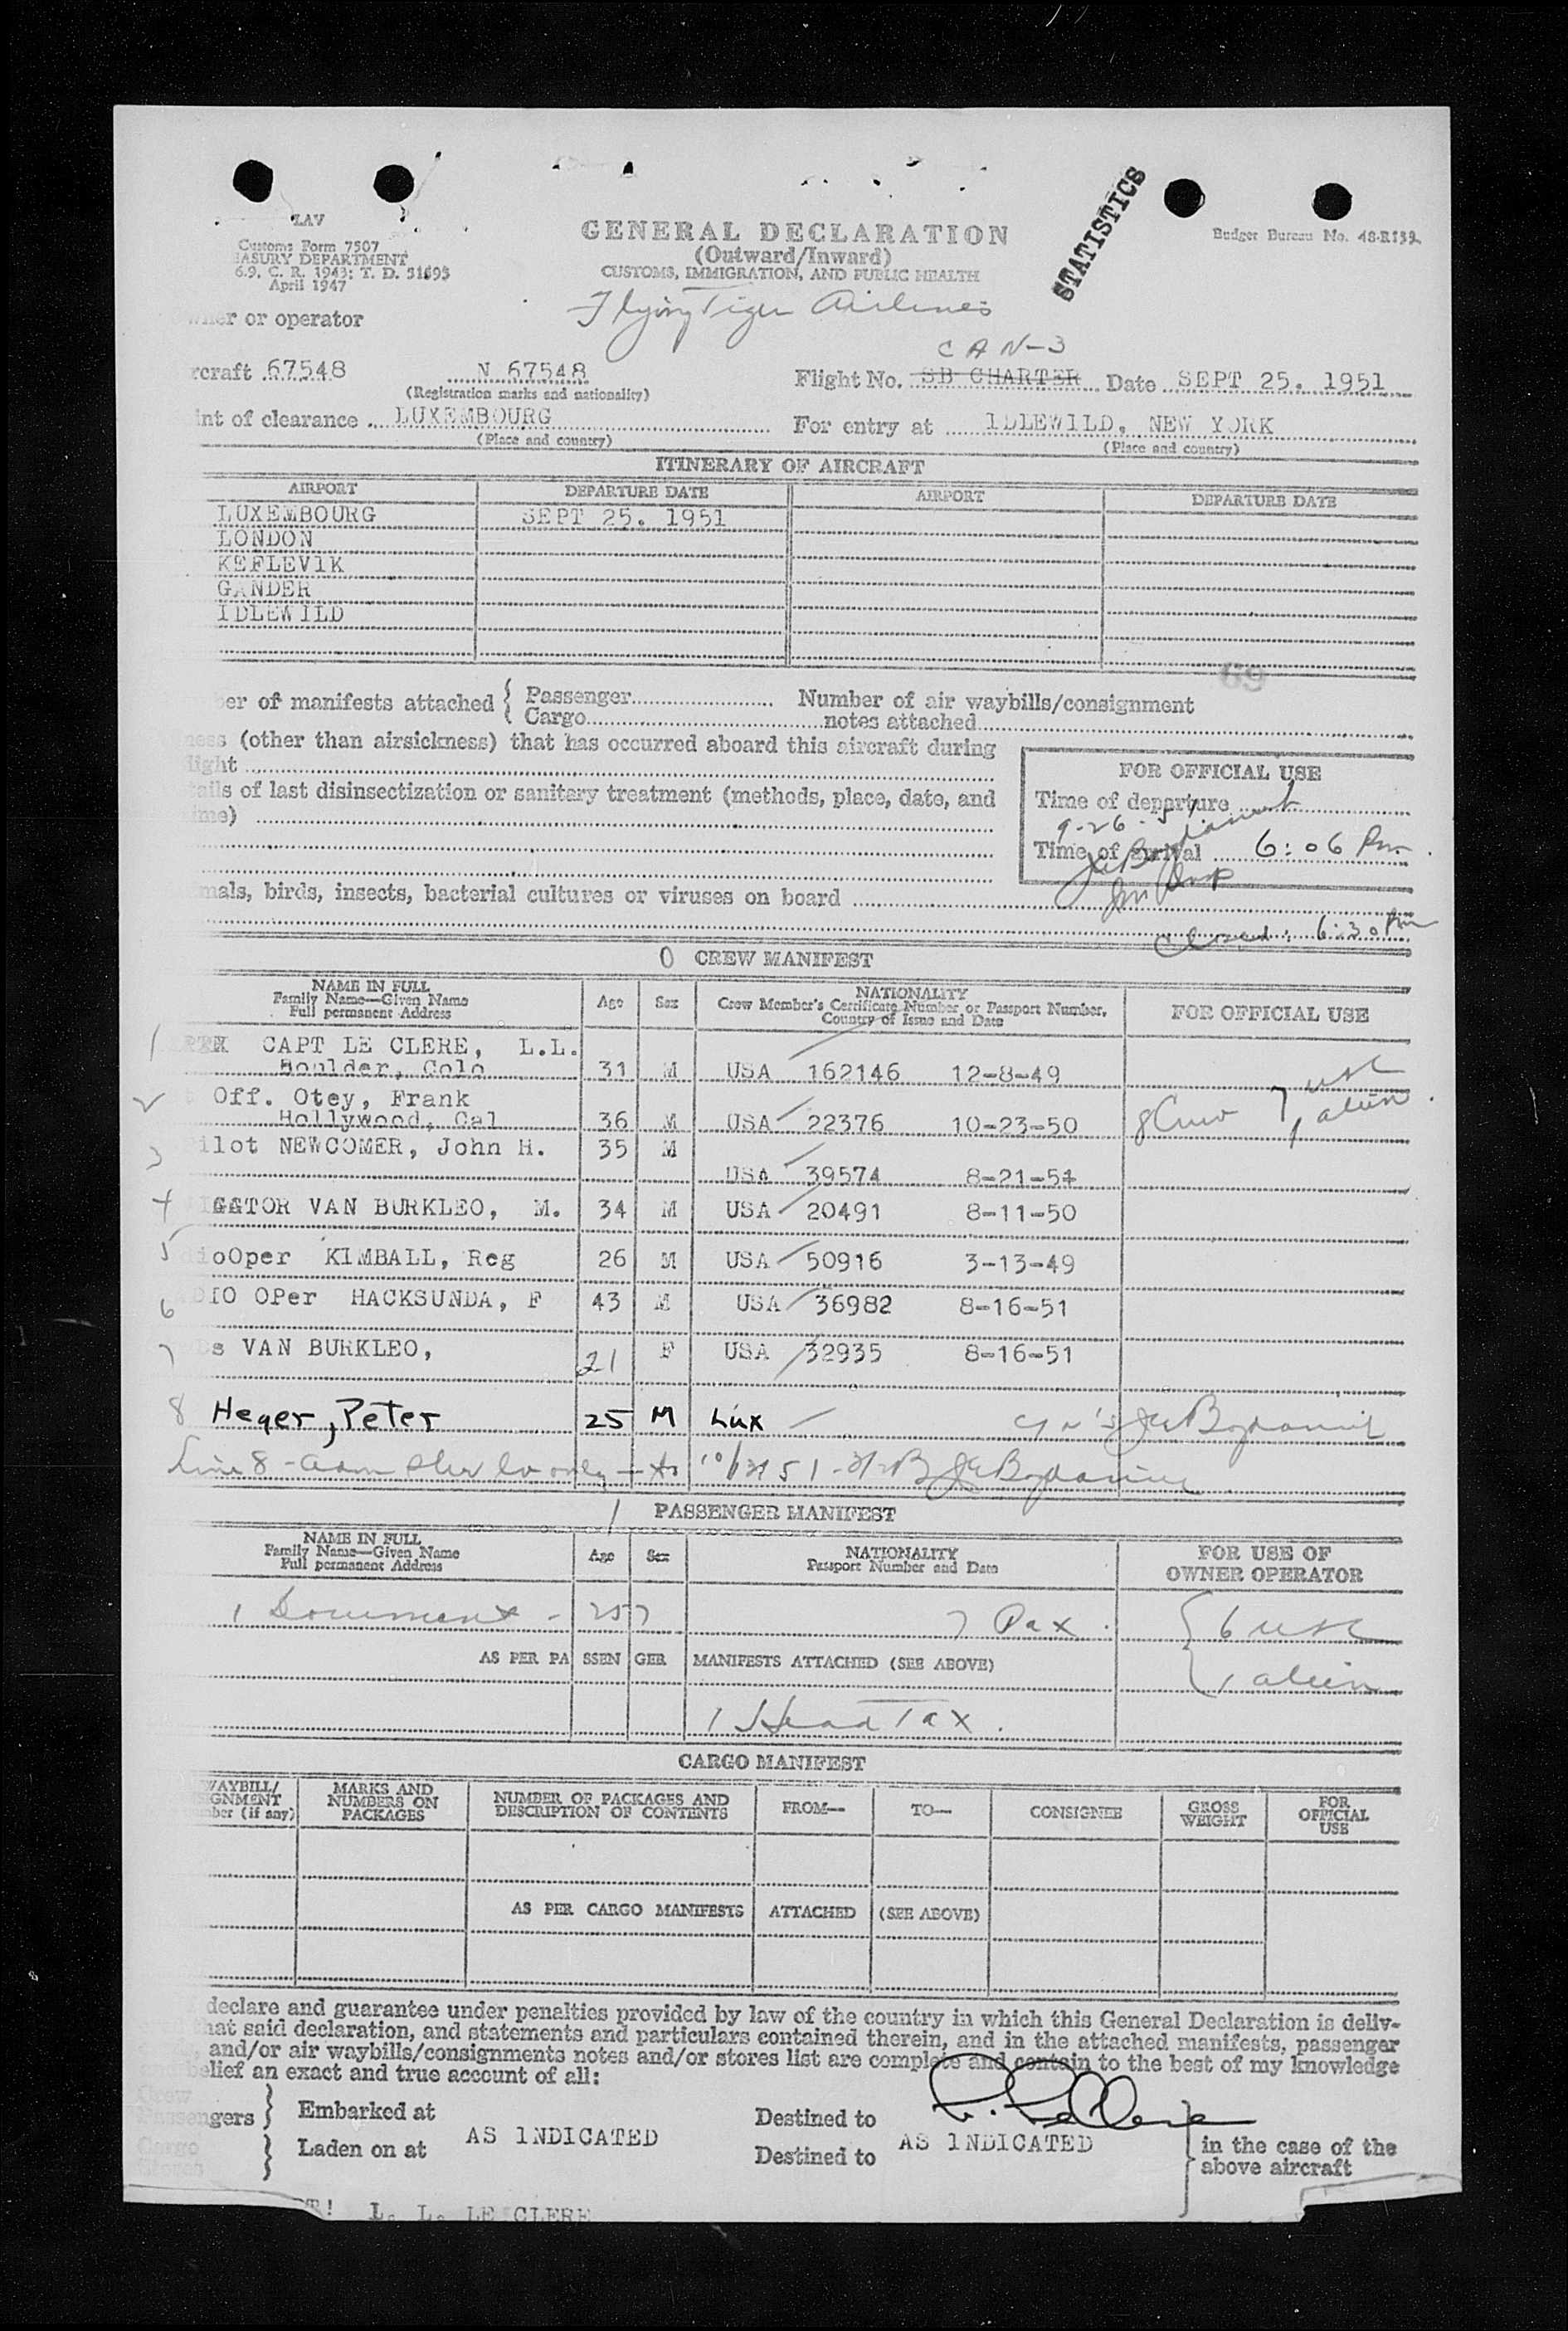 LAV
Customs Form 7507
EASURY DEPARTMENT
6.9, C. R. 1943: T. D. 51693
April 1947
GENERAL DECLARATION
(Outward/Inward)
CUSTOMS, IMMIGRATION, AND PUBLIC HEALTH
STATISTICS
Budget Bureau No. 48-R139.
or operator Flying Tiger Airlines
CAN-3
rcraft 67548 N 67548 Flight No. SB CHARTER Date SEPT 25. 1951
(Registration marks and nationality)
int of clearance LUXEMBOURG For entry at IDLEWILD, NEW YORK
(Place and country) (Place and country)
ITINERARY OF AIRCRAFT
AIRPORT DEPARTURE DATE AIRPORT DEPARTURE DATE
LUXEMBOURG SEPT 25. 1951
LONDON
KEFLEVIK
GANDER
IDLEWILD
69
er of manifests attached { Passenger Number of air waybills/consignment
Cargo notes attached
ness (other than airsickness) that has occurred aboard this aircraft during
light
FOR OFFICIAL USE
ails of last disinsectization or sanitary treatment (methods, place, date, and
ime)
Time of departure
9-26-51
Time of arrival 6:06 Pm
mals, birds, insects, bacterial cultures or viruses on board
Closed: 6:30 Pm
0 CREW MANIFEST
NAME IN FULL
Family Name—Given Name
Full permanent Address
Age Sex
NATIONALITY
Crew Member's Certificate Number or Passport Number,
Country of Issue and Date
FOR OFFICIAL USE
1 CAPT LE CLERE, L.L.
Boulder, Colo 31 M USA 162146 12-8-49
2 Off. Otey, Frank
Hollywood, Cal 36 M USA 22376 10-23-50 8 Crew 7 USC 1 alien
3 ilot NEWCOMER, John H. 35 M
USA 39574 8-21-51
4 GATOR VAN BURKLEO, M. 34 M USA 20491 8-11-50
5 ioOper KIMBALL, Reg 26 M USA 50916 3-13-49
6 DIO OPer HACKSUNDA, F 43 M USA 36982 8-16-51
7 s VAN BURKLEO, 21 F USA 32935 8-16-51
8 Heger, Peter 25 M Lux
Line 8 - adm
1 PASSENGER MANIFEST
NAME IN FULL
Family Name—Given Name
Full permanent Address
Age Sex
NATIONALITY
Passport Number and Date
FOR USE OF
OWNER OPERATOR
1 Document - 257 7 Pax { 6 USC
AS PER PASSENGER MANIFESTS ATTACHED (SEE ABOVE)
1 alien
1 Head Tax.
CARGO MANIFEST
WAYBILL/
SIGNMENT
mber (if any)
MARKS AND
NUMBERS ON
PACKAGES
NUMBER OF PACKAGES AND
DESCRIPTION OF CONTENTS
FROM— TO— CONSIGNEE
GROSS
WEIGHT
FOR
OFFICIAL
USE
AS PER CARGO MANIFESTS ATTACHED (SEE ABOVE)
declare and guarantee under penalties provided by law of the country in which this General Declaration is deliv-
hat said declaration, and statements and particulars contained therein, and in the attached manifests, passenger
and/or air waybills/consignments notes and/or stores list are complete and contain to the best of my knowledge
belief an exact and true account of all:
Crew
Passengers } Embarked at Destined to
AS INDICATED AS INDICATED
Cargo
Stores } Laden on at Destined to
in the case of the
above aircraft
T! L. L. LE CLERE